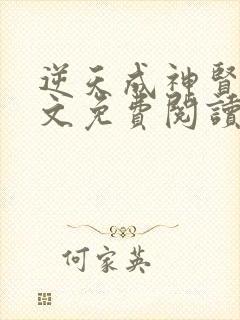 逆天成神賢
文免費閱讀
何家英